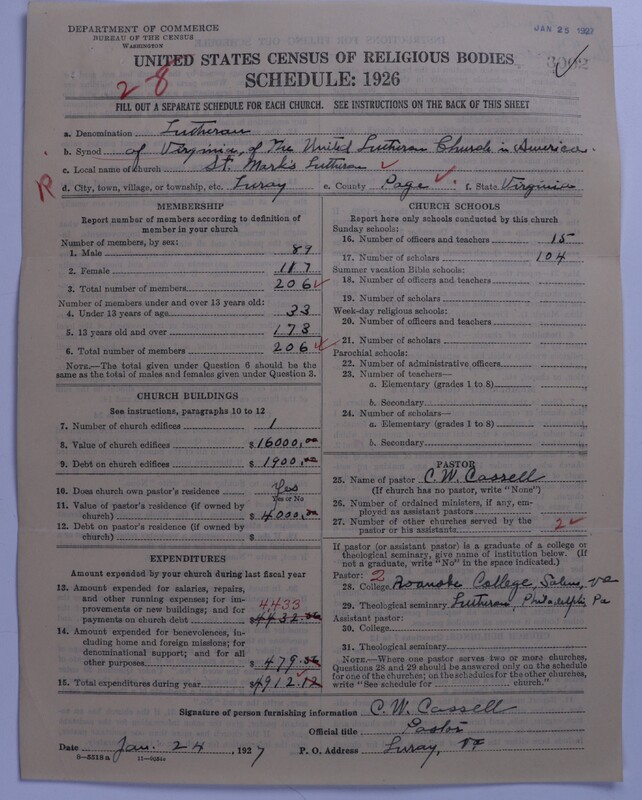 DEPARTMENT OF COMMERCE
BUREAU OF THE CENSUS
WASHINGTON
JAN 25 1927
UNITED STATES CENSUS OF RELIGIOUS BODIES
SCHEDULE: 1926
28
FILL OUT A SEPARATE SCHEDULE FOR EACH CHURCH. SEE INSTRUCTIONS ON THE BACK OF THIS SHEET
a. Denomination Lutheran
b. Synod of Virginia, of The United Lutheran Church in America.
c. Local name of church St. Mark's Lutheran
R
d. City, town, village, or township, etc. Luray e. County Page f. State Virginia
MEMBERSHIP
Report number of members according to definition of
member in your church
Number of members, by sex:
1. Male 89
2. Female 117
3. Total number of members 206
Number of members under and over 13 years old:
4. Under 13 years of age 33
5. 13 years old and over 173
6. Total number of members 206
NOTE.—The total given under Question 6 should be the
same as the total of males and females given under Question 3.
CHURCH BUILDINGS
See instructions, paragraphs 10 to 12
7. Number of church edifices 1
8. Value of church edifices $ 16000.00
9. Debt on church edifices $ 1900.00
10. Does church own pastor's residence Yes
Yes or No
11. Value of pastor's residence (if owned by
church) $ 4000.00
12. Debt on pastor's residence (if owned by
church) $
EXPENDITURES
Amount expended by your church during last fiscal year
13. Amount expended for salaries, repairs,
and other running expenses; for im-
provements or new buildings; and for 4,433
payments on church debt $ 4432.56
14. Amount expended for benevolences, in-
cluding home and foreign missions; for
denominational support; and for all
other purposes $ 479.56
15. Total expenditures during year $ 4912.12
CHURCH SCHOOLS
Report here only schools conducted by this church
Sunday schools:
16. Number of officers and teachers 15
17. Number of scholars 104
Summer vacation Bible schools:
18. Number of officers and teachers
19. Number of scholars
Week-day religious schools:
20. Number of officers and teachers
21. Number of scholars
Parochial schools:
22. Number of administrative officers
23. Number of teachers—
a. Elementary (grades 1 to 8)
b. Secondary
24. Number of scholars—
a. Elementary (grades 1 to 8)
b. Secondary
PASTOR
25. Name of pastor C. W. Cassell
(If church has no pastor, write "None")
26. Number of ordained ministers, if any, em-
ployed as assistant pastors
27. Number of other churches served by the
pastor or his assistants 2
If pastor (or assistant pastor) is a graduate of a college or
theological seminary, give name of institution below. (If
not a graduate, write "No" in the space indicated.)
Pastor: 2
28. College Roanoke College, Salem, Va
29. Theological seminary Lutheran Philadelphia Pa
Assistant pastor:
30. College
31. Theological seminary
NOTE.—Where one pastor serves two or more churches,
Questions 28 and 29 should be answered only on the schedule
for one of the churches; on the schedules for the other churches,
write "See schedule for church."
Signature of person furnishing information C. W. Cassell
Official title Pastor
Date Jan. 24, 1927 P. O. Address Luray, Va
8—5318a 11—9034a